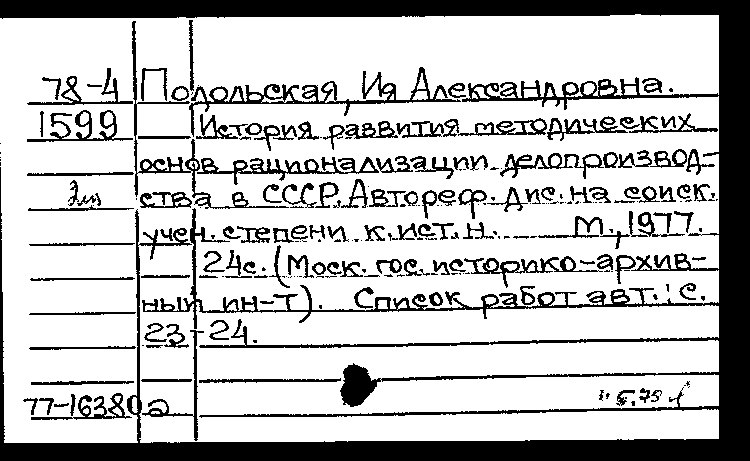 78-4 Подольская, Ия Александровна.
1599 История развития методических
основ рационализации делопроизвод-
ства в СССР. Автореф. дис. на соиск.
учен. степени к. ист. н. М., 1977.
24с. (Моск. гос. историко-архив-
ный ин-т). Список работ авт.: с.
23-24.
77-16380а